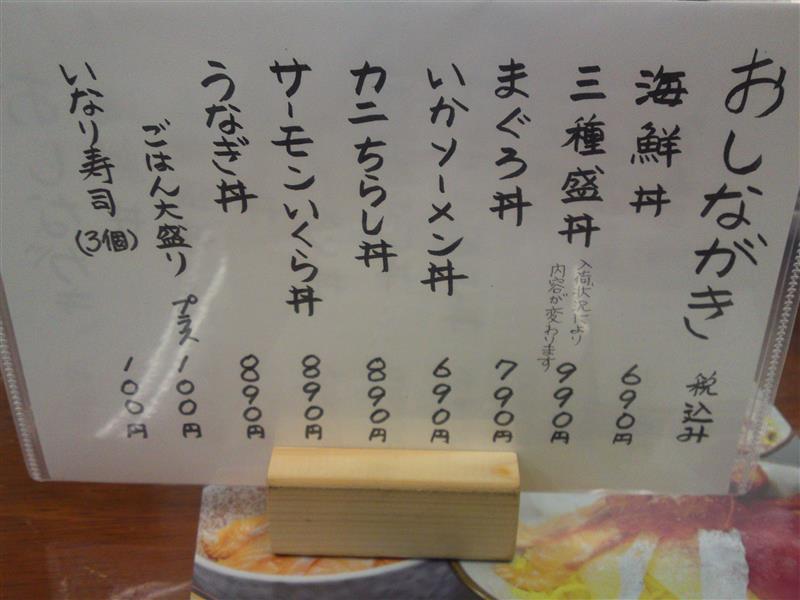 おしながき 税込み
海鮮丼 690円
三種盛丼 990円
入荷状況により
内容が変わります
まぐろ丼 790円
いかソーメン丼 690円
カニちらし丼 890円
サーモンいくら丼 890円
うなぎ丼 890円
ごはん大盛り プラス100円
いなり寿司(3個) 100円